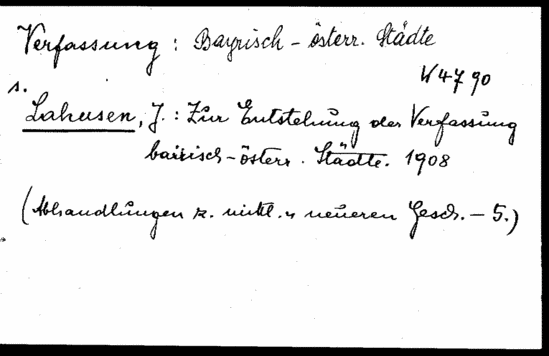 Verfassung : Bayrisch - österr. Städte
W 47 90
s.
Lahusen, J. : Zur Entstehung der Verfassung
bairisch - österr. Städte. 1908
(Abhandlungen z. mittl. u neueren Gesch. - 5.)